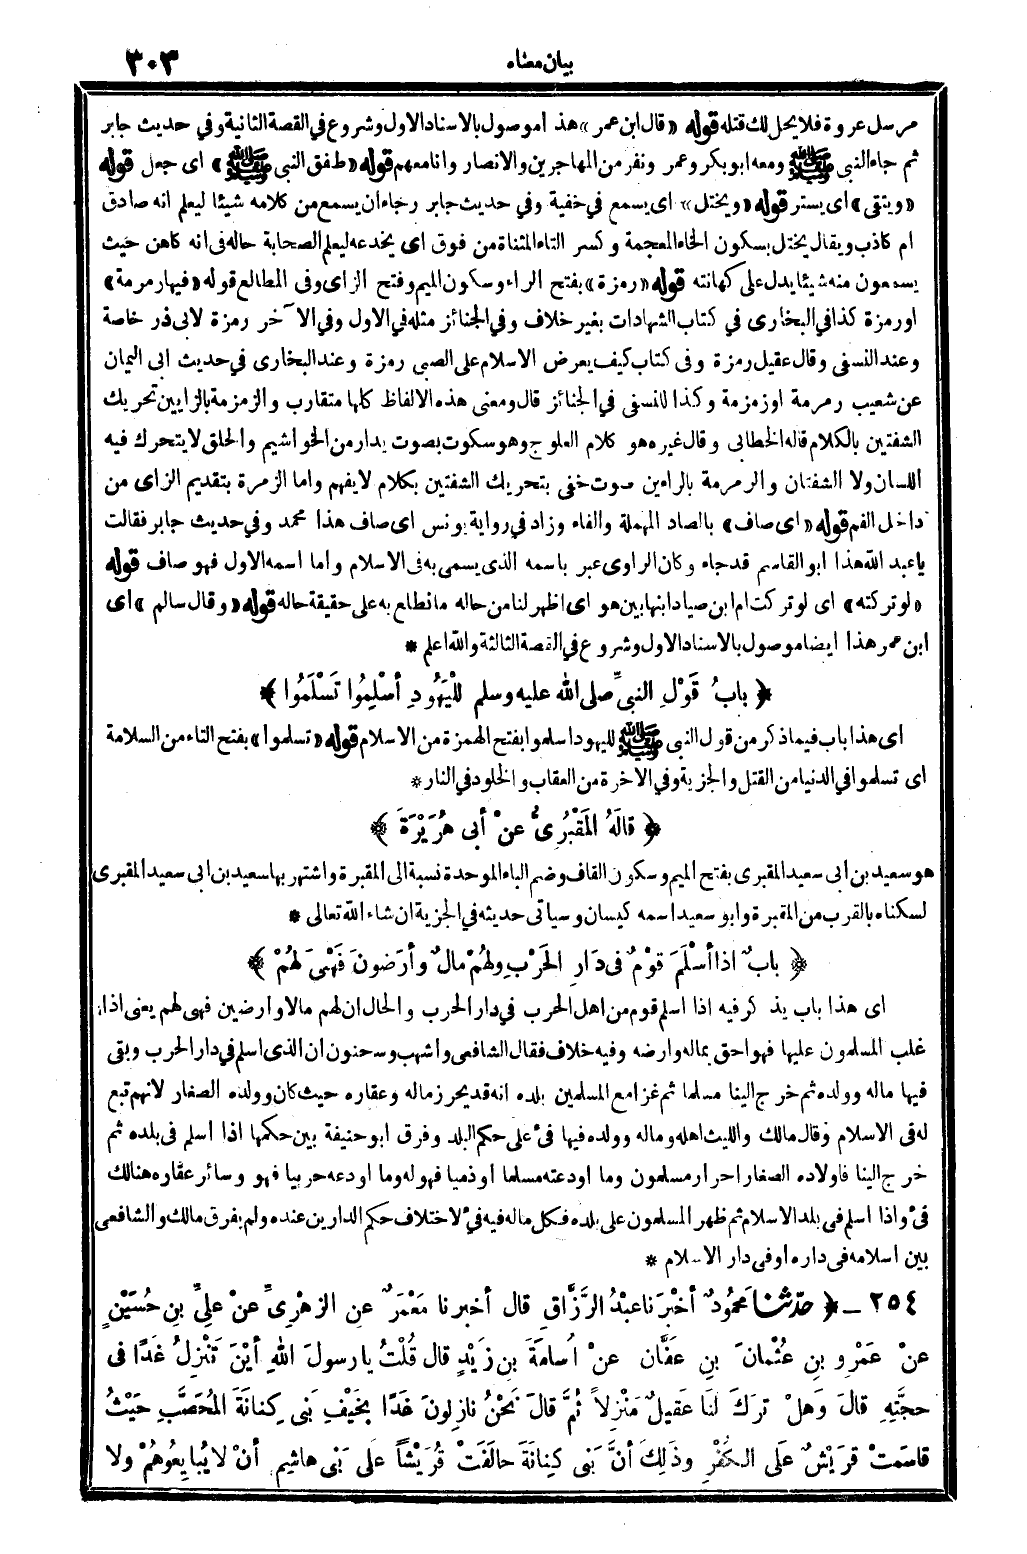 بيان معناه ٣٠٣
مرسل عروة فلا يحل لك قتله قوله «قال ابن عمر» هذا موصول بالاسناد الاول وشروع في القصة الثانية وفي حديث جابر
ثم جاء النبي ﷺ ومعه ابو بكر وعمر ونفر من المهاجرين والانصار وانا معهم قوله «طفق النبي ﷺ» اى جعل قوله
«ويتقى» اى يستر قوله «ويختل» اى يسمع في خفية وفي حديث جابر رجاء ان يسمع من كلامه شيئا ليعلم انه صادق
ام كاذب ويقال يختل بسكون الخاء المعجمة وكسر التاء المثناة من فوق اى يخدعه ليعلم الصحابة حاله فى انه كاهن حيث
يسمعون منه شيئا يدل على كهانته قوله «رمزة» بفتح الراء وسكون الميم وفتح الزاى وفى المطالع قوله «فيها رمرمة»
او رمزة كذا في البخارى في كتاب الشهادات بغير خلاف وفي الجنائز مثله في الاول وفي الآخر رمزة لابى ذر خاصة
وعند النسفى وقال عقيل رمزة وفى كتاب كيف يعرض الاسلام على الصبى رمزة وعند البخارى في حديث ابى اليمان
عن شعيب رمرمة او زمزمة وكذا للنسفى في الجنائز قال ومعنى هذه الالفاظ كلها متقارب والزمزمة بالزايين تحريك
الشفتين بالكلام قاله الخطابى وقال غيره هو كلام العلوج وهو سكوت بصوت يدار من الخواشيم والحلق لا يتحرك فيه
اللسان ولا الشفتان والرمرمة بالراءين صوت خفى بتحريك الشفتين بكلام لا يفهم واما الزمرة بتقديم الزاى من
داخل الفم قوله «اى صاف» بالصاد المهملة والفاء وزاد في رواية يونس اى صاف هذا محمد وفي حديث جابر فقالت
يا عبد الله هذا ابو القاسم قد جاء وكان الراوى عبر باسمه الذى يسمى به فى الاسلام واما اسمه الاول فهو صاف قوله
«لو تركته» اى لو تركت ام ابن صياد ابنها بين هو اى اظهر لنا من حاله ما نطلع به على حقيقة حاله قوله «وقال سالم» اى
ابن عمر هذا ايضا موصول بالاسناد الاول وشروع في القصة الثالثة والله اعلم *
﴿ بابُ قَوْلِ النبيِّ صلى الله عليه وسلم لِلْيَهُودِ أسْلِمُوا تَسْلَمُوا ﴾
اى هذا باب فيما ذكر من قول النبى ﷺ لليهود اسلموا بفتح الهمزة من الاسلام قوله «تسلموا» بفتح التاء من السلامة
اى تسلموا في الدنيا من القتل والجزية وفي الآخرة من العقاب والخلود في النار *
﴿ قالهُ المَقْبُرِىُّ عنْ أبى هُرَيْرَةَ ﴾
هو سعيد بن ابى سعيد المقبرى بفتح الميم وسكون القاف وضم الباء الموحدة نسبة الى المقبرة واشتهر بها سعيد بن ابى سعيد المقبرى
لسكناه بالقرب من المقبرة وابو سعيد اسمه كيسان وسيأتى حديثه في الجزية ان شاء الله تعالى *
﴿ بابٌ اذا أسْلَمَ قوْمٌ فى دَارِ الحَرْبِ ولهُمْ مالٌ وأرَضونَ فَهْىَ لهُمْ ﴾
اى هذا باب يذكر فيه اذا اسلم قوم من اهل الحرب في دار الحرب والحال ان لهم مالا وارضين فهى لهم يعنى اذا
غلب المسلمون عليها فهو احق بماله وارضه وفيه خلاف فقال الشافعى واشهب وسحنون ان الذى اسلم في دار الحرب وبقى
فيها ماله وولده ثم خرج الينا مسلما ثم غزا مع المسلمين بلده انه قد يحرز ماله وعقاره حيث كان وولده الصغار لانهم تبع
له فى الاسلام وقال مالك والليث اهله وماله وولده فيها فىء على حكم البلد وفرق ابو حنيفة بين حكمها اذا اسلم فى بلده ثم
خرج الينا فاولاده الصغار احرار مسلمون وما اودعته مسلما او ذميا فهو له وما اودعه حربيا فهو وسائر عقاره هنالك
فىء واذا اسلم فى بلد الاسلام ثم ظهر المسلمون على بلده فكل ماله فيه فىء لاختلاف حكم الدارين عنده ولم يفرق مالك والشافعى
بين اسلامه فى داره او فى دار الاسلام *
٢٥٤ ـ ﴿ حدّثنا محمُودٌ أخْبرَنا عبْدُ الرَّزَّاقِ قال أخبرنا مَعْمَرٌ عنِ الزهْرِىِّ عنْ علِيِّ بنِ حُسَيْنٍ
عنْ عَمْرِو بنِ عُثْمانَ بنِ عفَّان عنْ اُسامَةَ بنِ زَيْدٍ قال قُلْتُ يا رسولَ اللهِ أيْنَ تَنْزِلُ غَدًا فى
حجَّتِهِ قالَ وَهلْ ترَكَ لنَا عَقيلٌ مَنْزِلاً ثُمَّ قالَ نَحْنُ نازِلونَ غَدًا بخَيْفِ بَنى كِنانَةَ المُحَصَّبِ حَيْثُ
قاسَمَتْ قرَيْشٌ علَى الكُفْرِ وذَلِكَ أنَّ بَنى كِنانَةَ حالَفَتْ قُرَيْشًا علَى بَنى هاشِمٍ أنْ لا يُبايعُوهُمْ ولا